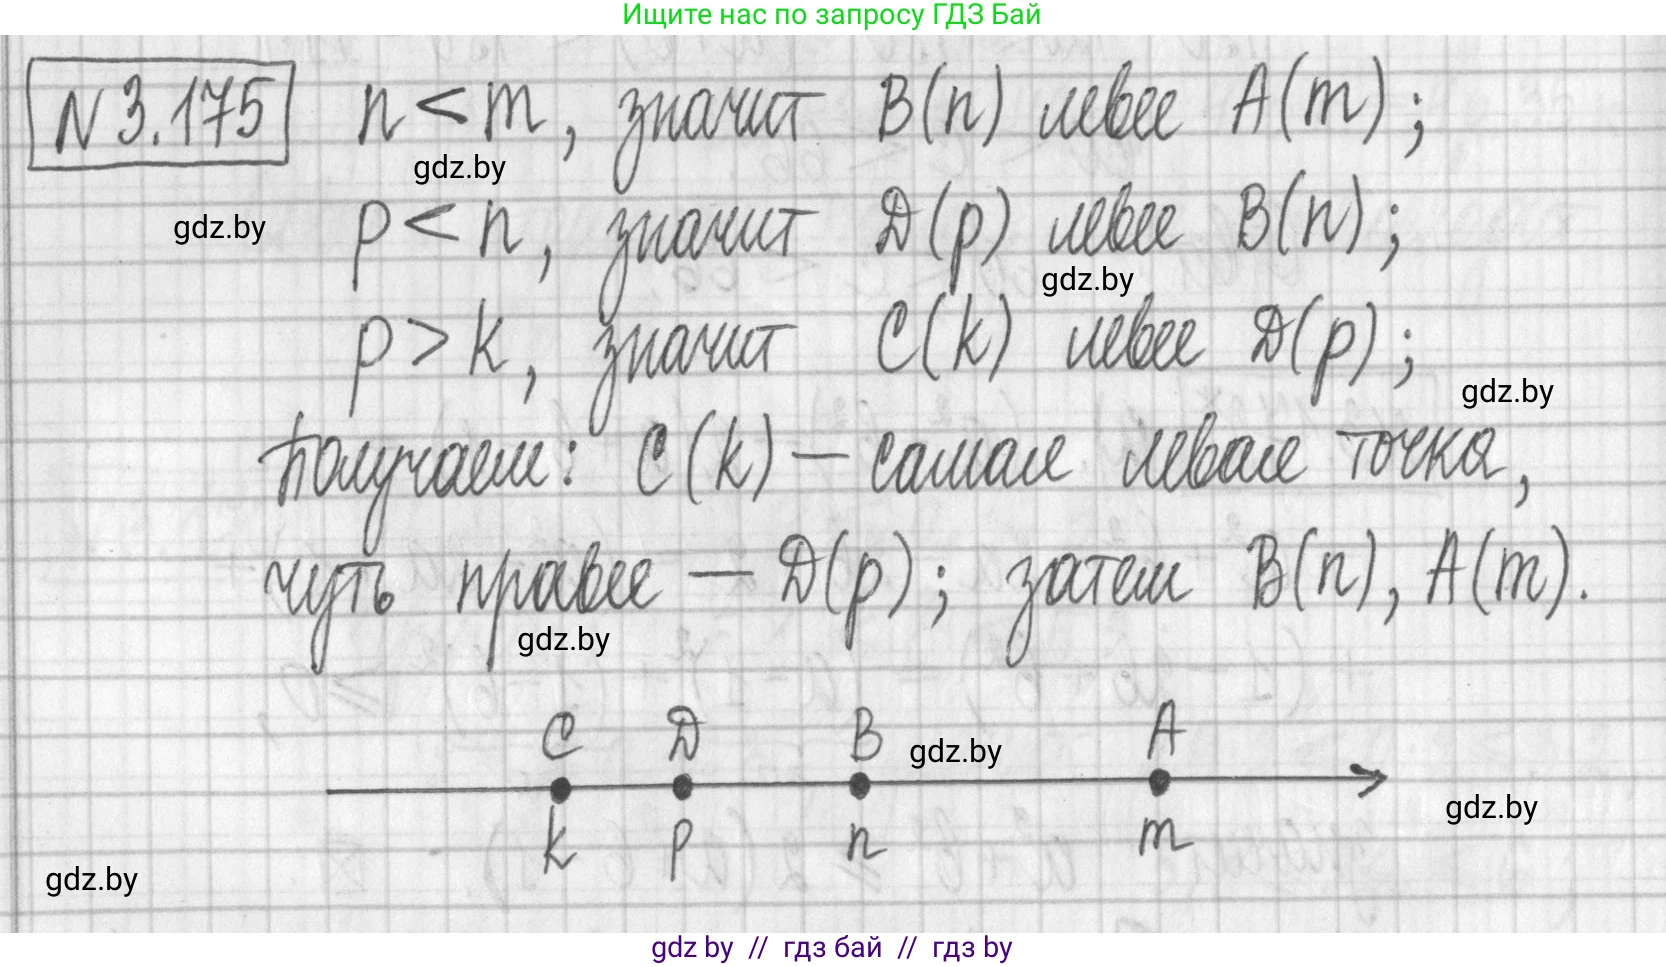 Ищите нас по запросу ГДЗ Бай
N 3.175 n < m, значит B(n) левее A(m);
gdz.by
gdz.by p < n, значит D(p) левее B(n);
gdz.by
p > k, значит C(k) левее D(p);
gdz.by
Получаем: C(k) — самая левая точка,
чуть правее — D(p); затем B(n), A(m).
gdz.by
C D B gdz.by A
gdz.by
k p n m
gdz.by
gdz by // гдз бай // гдз by